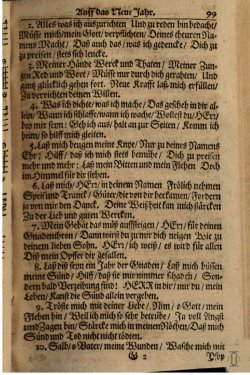 Auff das Neue Jahr. 99
2. Alles was ich auszurichten Und zu reden bin bedacht/
Müsse mich/mein Gott/ verpflichten/ Deines theuren Na-
mens Macht/ Daß auch das/ was ich gedencke/ Dich zu
zu preisen/ stets sich lencke.
3. Meiner Hände Werck und Thaten/ Meiner Zun-
gen Red und Wort/ Müsse nur durch dich gerathen/ Und
gantz glücklich gehen fort. Neue Krafft laß mich erfüllen/
Zu verrichten deinen Willen.
4. Was ich dichte/ was ich mache/ Das gescheh in dir al-
lein/ Wann ich schlaffe/ wann ich wache/ Wollest du/ HErr/
bey mir seyn: Geh ich aus/ halt an zur Seiten/ Komm ich
heim/ so hilff mich gleiten.
5. Laß mich beugen meine Knie/ Nur zu deines Namens
Ehr: Hilff/ daß ich mich stets bemühe/ Dich zu preisen
mehr und mehr: Laß mein Bitten und mein Flehen Doch
im Himmel für dir stehen.
6. Laß mich/ HErr/ in deinem Namen Frölich nehmen
Speis und Tranck: Güter/ die von dir herkamen/ Fordern
ja von mir den Danck. Deine Weißheit kan mich stärcken
Zu der Lieb und guten Wercken.
7. Mein Gebät das müß aufsteigen/ HErr/ für deinen
Gnadenthron: Dann wirst du zu mir dich neigen Wie zu
deinem lieben Sohn. HErr/ ich weiß/ es wird für allen
Diß mein Opffer dir gefallen.
8. Laß diß seyn ein Jahr der Gnaden/ Laß mich büssen
meine Sünd/ Hilff/ daß sie mir nimmer schaden/ Son-
dern bald Verzeihung find/ HERR in dir/ nur du/ mein
Leben/ Kanst die Sünd allein vergeben.
9. Tröste mich mit deiner Liebe/ Nim/ o Gott/ mein
Flehen hin/ Weil ich mich so sehr betrübe/ Ja voll Angst
und Zagen bin/ Stärcke mich in meinen Nöthen/ Daß mich
Sünd und Tod nicht nicht tödten.
10. Salb/ o Vater/ meine Wunden/ Wasche mich mit
G 2